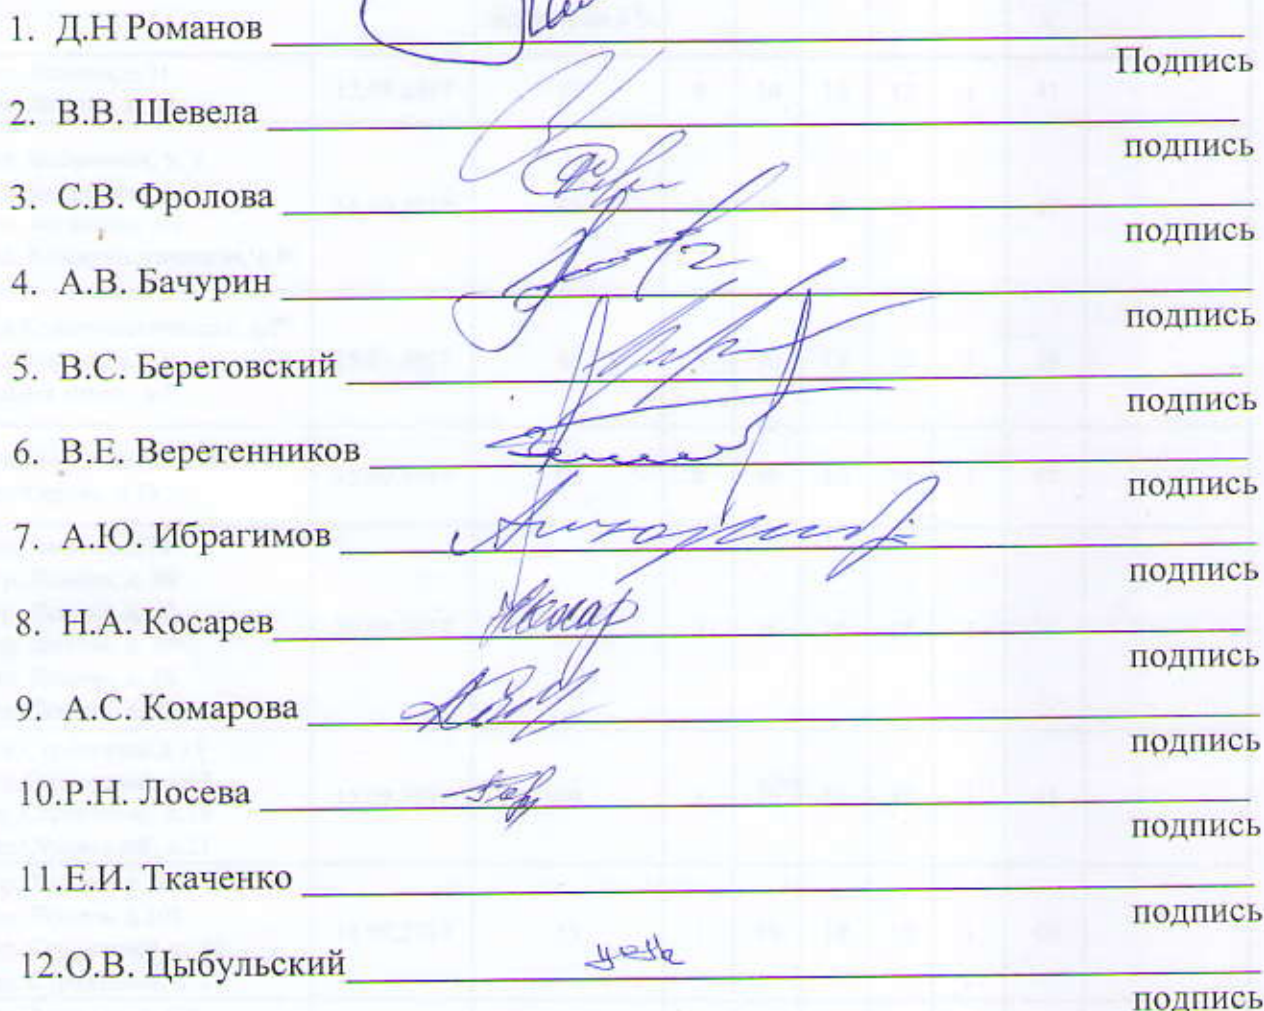 1. Д.Н Романов
Подпись
2. В.В. Шевела
подпись
3. С.В. Фролова
подпись
4. А.В. Бачурин
подпись
5. В.С. Береговский
подпись
6. В.Е. Веретенников
подпись
7. А.Ю. Ибрагимов
подпись
8. Н.А. Косарев
подпись
9. А.С. Комарова
подпись
10.Р.Н. Лосева
подпись
11.Е.И. Ткаченко
подпись
12.О.В. Цыбульский
подпись